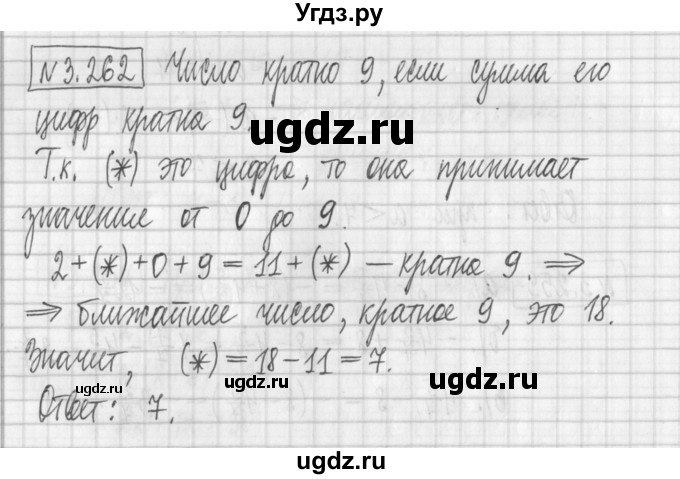 Угдз.ру
N3.262 Число кратно 9, если сумма его
цифр кратна 9.
ugdz.ru
Т.к. (*) это цифра, то она принимает
значение от 0 до 9.
2+(*)+0+9=11+(*) — кратна 9. ⇒
⇒ ближайшее число, кратное 9, это 18.
Значит, (*)=18-11=7.
ugdz.ru ugdz.ru ugdz.ru
Ответ: 7.
ugdz.ru